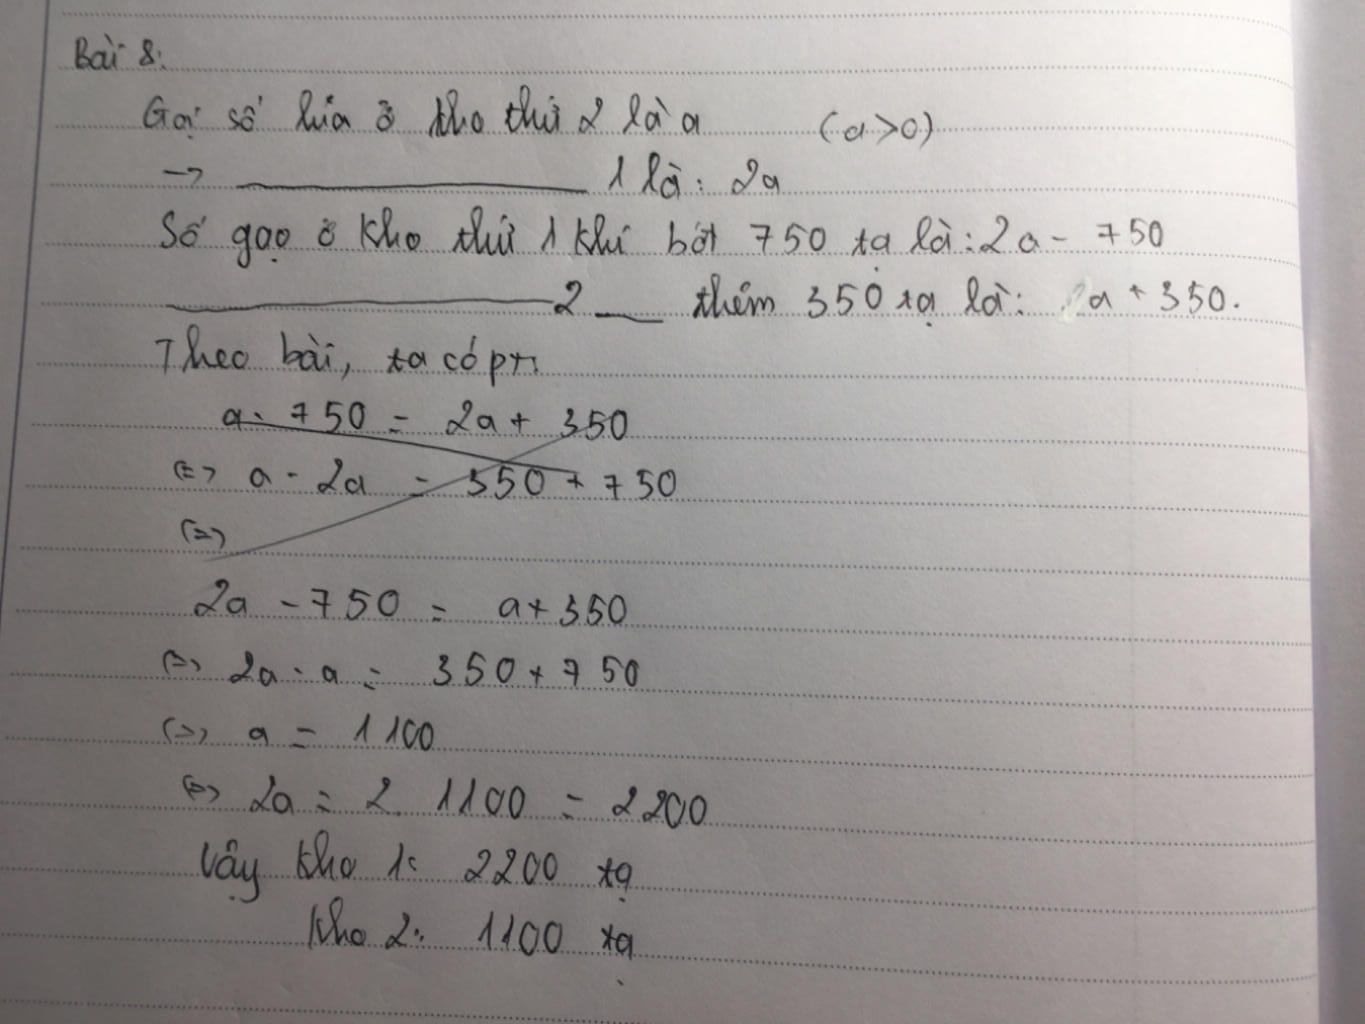 Bài 8:
Gọi số lúa ở kho thứ 2 là a (a>0)
→ ——— 1 là: 2a
Số gạo ở kho thứ 1 khi bớt 750 tạ là: 2a - 750
——— 2 — thêm 350 tạ là: a + 350.
Theo bài, ta có pt:
a - 750 = 2a + 350
(=) a - 2a = 350 + 750
(=)
2a - 750 = a + 350
(=) 2a - a = 350 + 750
(=) a = 1100
(=) 2a = 2. 1100 = 2200
Vậy kho 1: 2200 tạ
kho 2: 1100 tạ